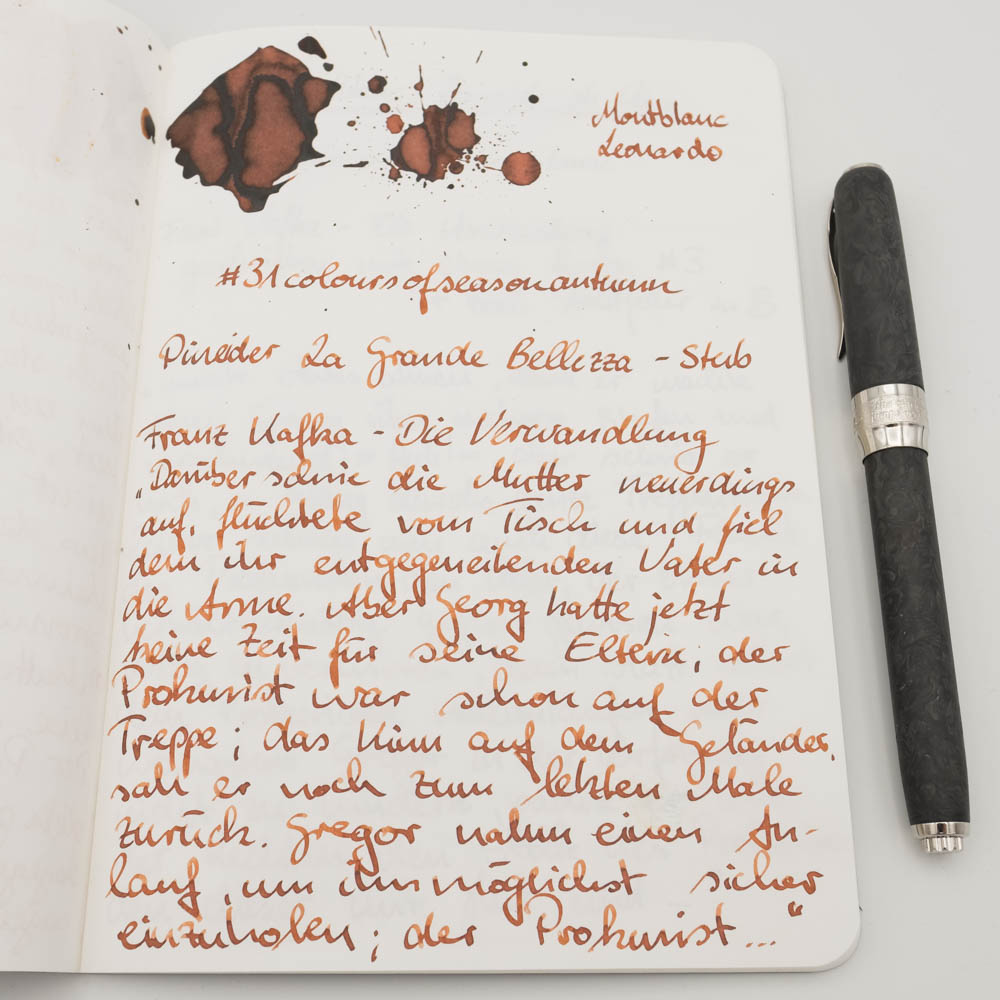 Montblanc
Leonardo
#31coloursofseasonautumn
Pineider La Grande Bellezza - Stub
Franz Kafka - Die Verwandlung
„Darüber schrie die Mutter neuerdings
auf, flüchtete vom Tisch und fiel
dem ihr entgegeneilenden Vater in
die Arme. Aber Georg hatte jetzt
keine Zeit für seine Eltern; der
Prokurist war schon auf der
Treppe; das Kinn auf dem Geländer,
sah er noch zum letzten Male
zurück. Gregor nahm einen An-
lauf, um ihn möglichst sicher
einzuholen; der Prokurist..."